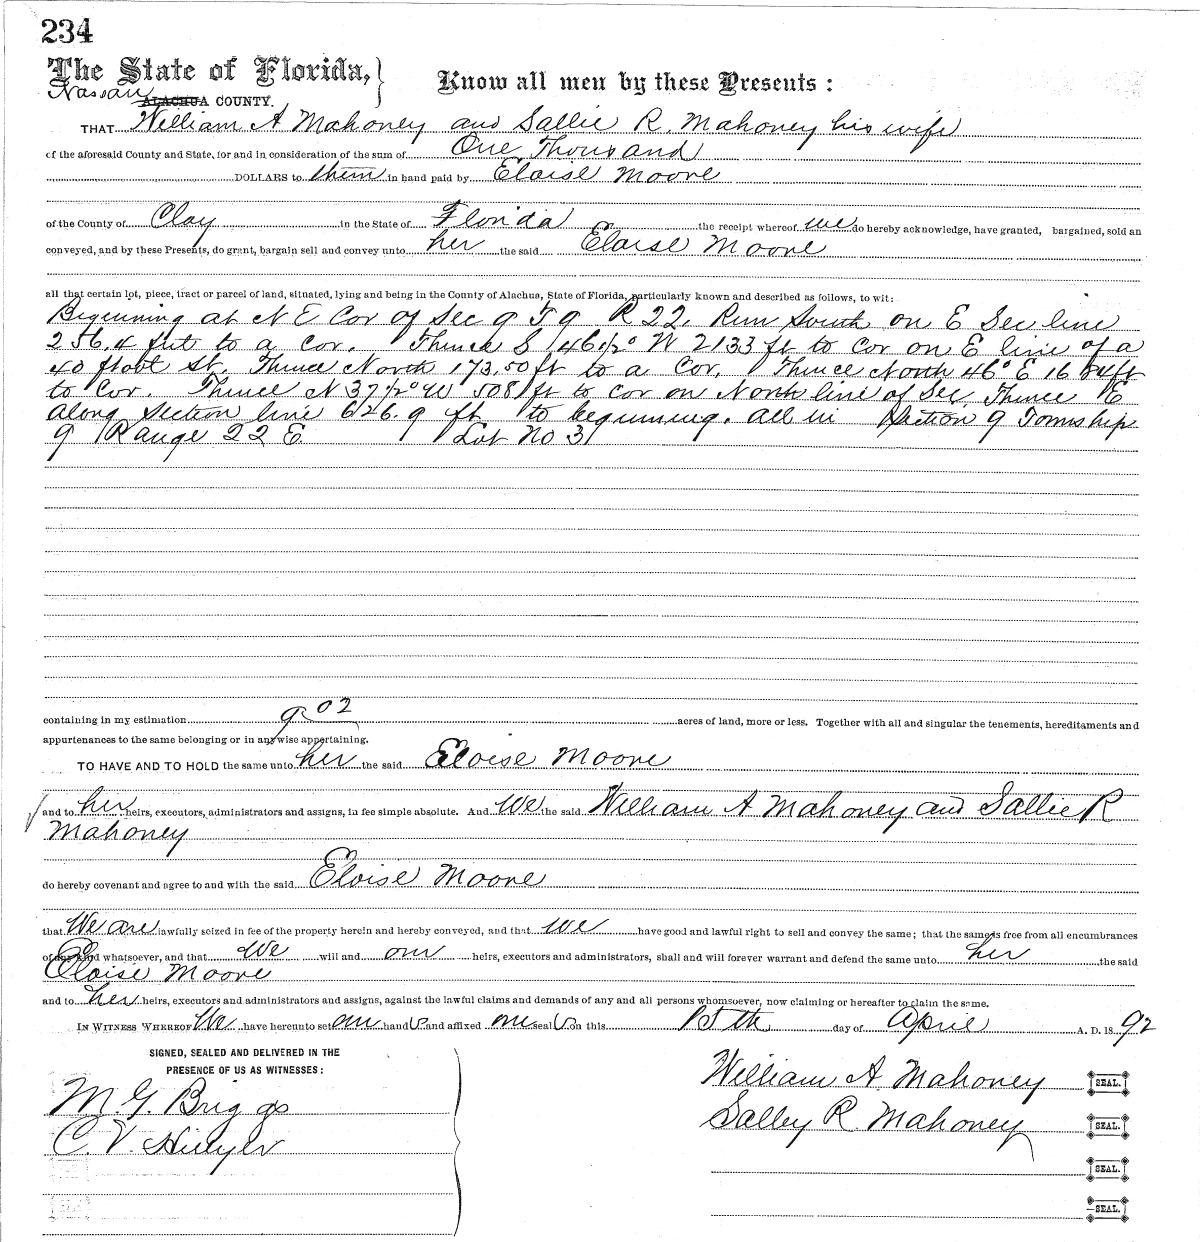 234
The State of Florida,
Know all men by these Presents:
Nassau
ALACHUA COUNTY.
THAT William A Mahoney and Sallie R. Mahoney his wife
of the aforesaid County and State, for and in consideration of the sum of One Thousand
DOLLARS to them in hand paid by Eloise Moore
of the County of Clay in the State of Florida the receipt whereof we do hereby acknowledge, have granted, bargained, sold an
conveyed, and by these Presents, do grant, bargain sell and convey unto her the said Eloise Moore
all that certain lot, piece, tract or parcel of land, situated, lying and being in the County of Alachua, State of Florida, particularly known and described as follows, to wit:
Beginning at N E Cor of Sec 9 T 9 R 22. Run South on E Sec line
256.4 feet to a Cor. Thence S 46 1/2° W 2133 ft to Cor on E line of a
40 foot St. Thence North 173.50 ft to a Cor. Thence North 46° E 16 ft
to Cor. Thence N 37 1/2° W 508 ft to Cor on North line of Sec Thence E
along Section line 626.9 ft to beginning. all in Section 9 Township
9 Range 22 E Lot No 3
containing in my estimation 9 02 acres of land, more or less. Together with all and singular the tenements, hereditaments and
appurtenances to the same belonging or in anywise appertaining.
TO HAVE AND TO HOLD the same unto her the said Eloise Moore
and to her heirs, executors, administrators and assigns, in fee simple absolute. And We the said William A Mahoney and Sallie R
Mahoney
do hereby covenant and agree to and with the said Eloise Moore
that We are lawfully seized in fee of the property herein and hereby conveyed, and that we have good and lawful right to sell and convey the same; that the same is free from all encumbrances
of any kind whatsoever, and that We will and our heirs, executors and administrators, shall and will forever warrant and defend the same unto her the said
Eloise Moore
and to her heirs, executors and administrators and assigns, against the lawful claims and demands of any and all persons whomsoever, now claiming or hereafter to claim the same.
IN WITNESS WHEREOF We have hereunto set our hands and affixed our seals on this day of April A. D. 1892
SIGNED, SEALED AND DELIVERED IN THE
PRESENCE OF US AS WITNESSES:
William A. Mahoney SEAL.
M. G. Briggs
Salley R Mahoney SEAL.
C. V. Hillyer
SEAL.
SEAL.